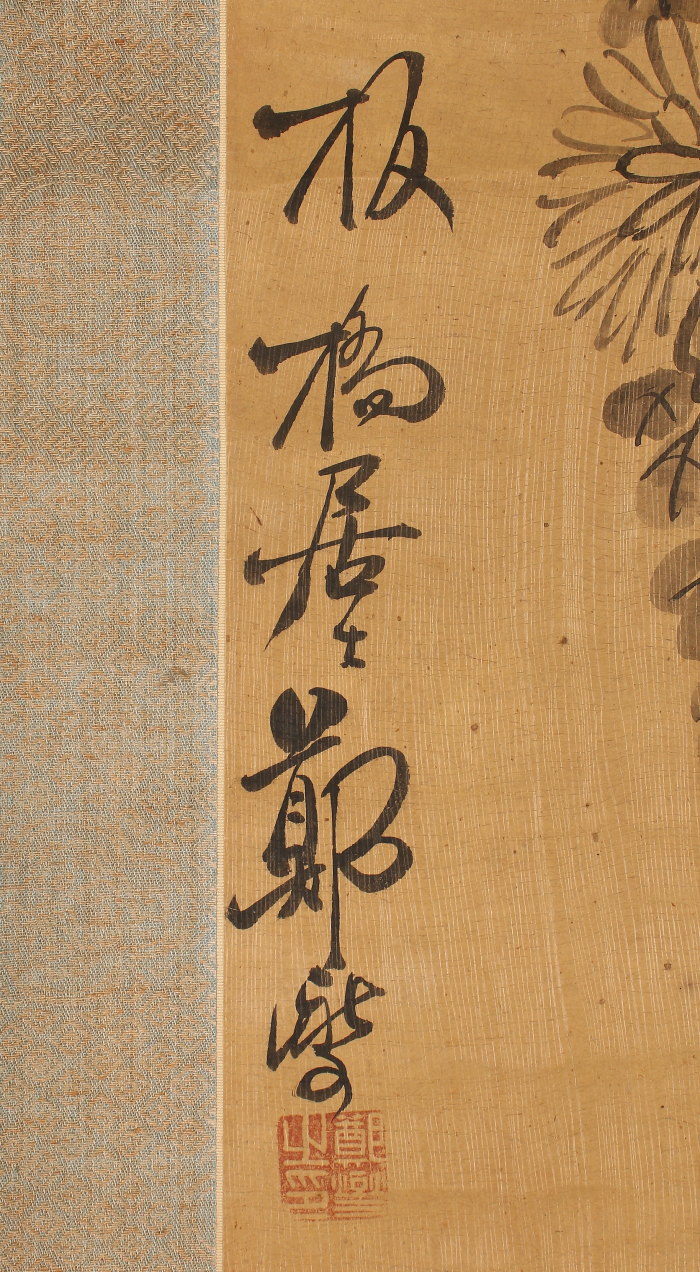 板橋居士鄭燮
鄭燮之印